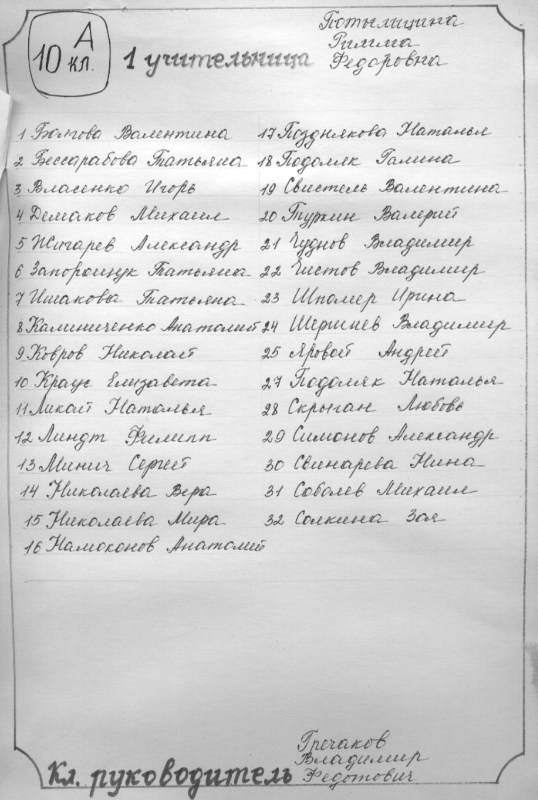 10 А кл.
1 учительница
Потылицина
Римма
Федоровна
1 Балгова Валентина
2 Бессарабова Татьяна
3 Власенко Игорь
4 Демаков Михаил
5 Жигарев Александр
6 Запорощук Татьяна
7 Ишакова Татьяна
8 Калиниченко Анатолий
9 Ковров Николай
10 Краус Елизавета
11 Ликай Наталья
12 Линдт Филипп
13 Минич Сергей
14 Николаева Вера
15 Николаева Мира
16 Намоконов Анатолий
17 Позднякова Наталья
18 Подоляк Галина
19 Свистель Валентина
20 Туркин Валерий
21 Чуднов Владимир
22 Чистов Владимир
23 Шпомер Ирина
24 Шершнев Владимир
25 Яровой Андрей
27 Подоляк Наталья
28 Скрыган Любовь
29 Симонов Александр
30 Свинарева Нина
31 Соболев Михаил
32 Сомкина Зоя
Кл. руководитель
Гречаков
Владимир
Федотович